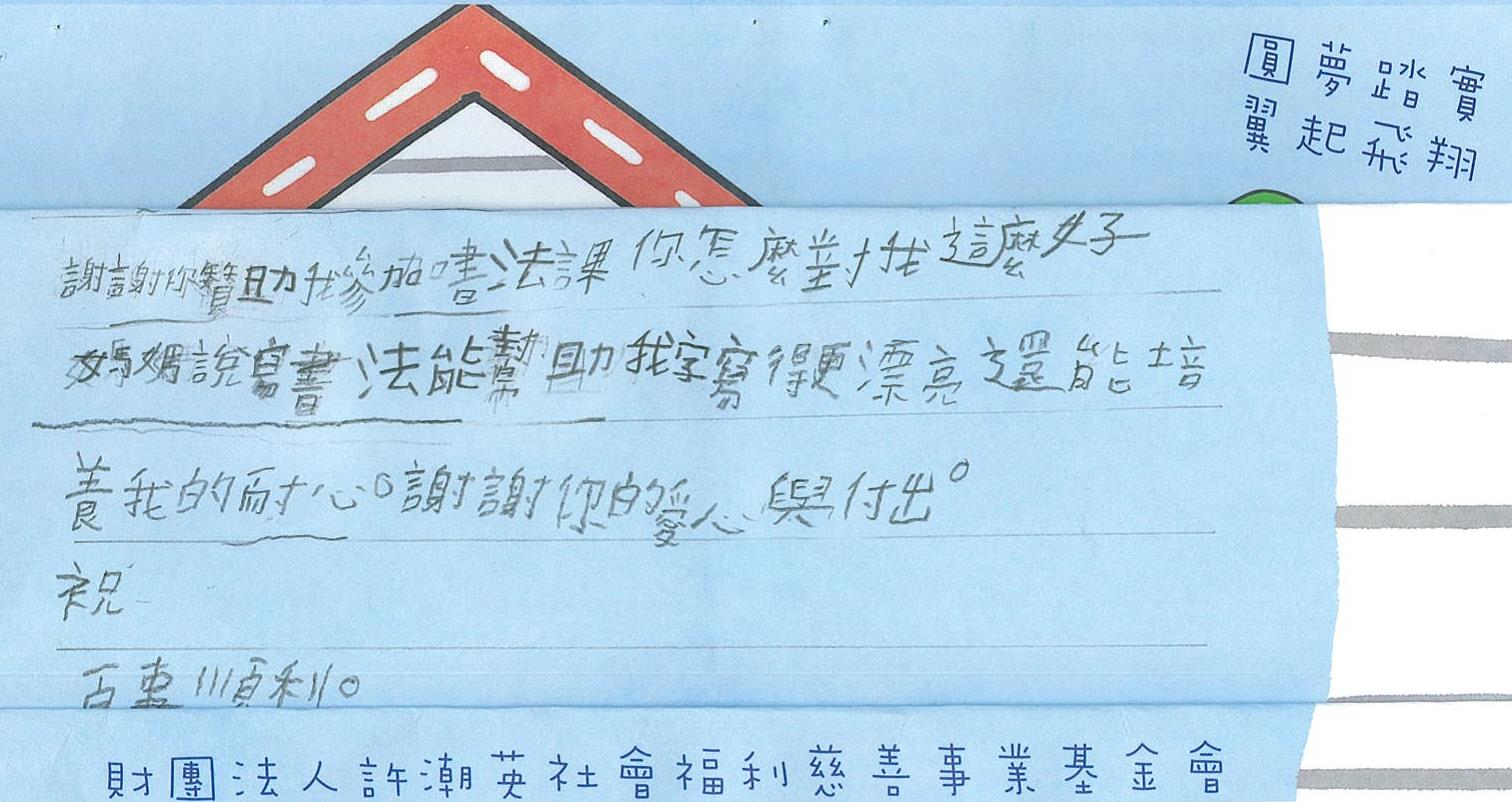 圓夢踏實
翼起飛翔
謝謝你贊助我參加書法課你怎麼對我這麼好
媽媽說寫書法能幫助我字寫得更漂亮還能培
養我的耐心。謝謝你的愛心與付出。
祝
百事順利。
財團法人許潮英社會福利慈善事業基金會